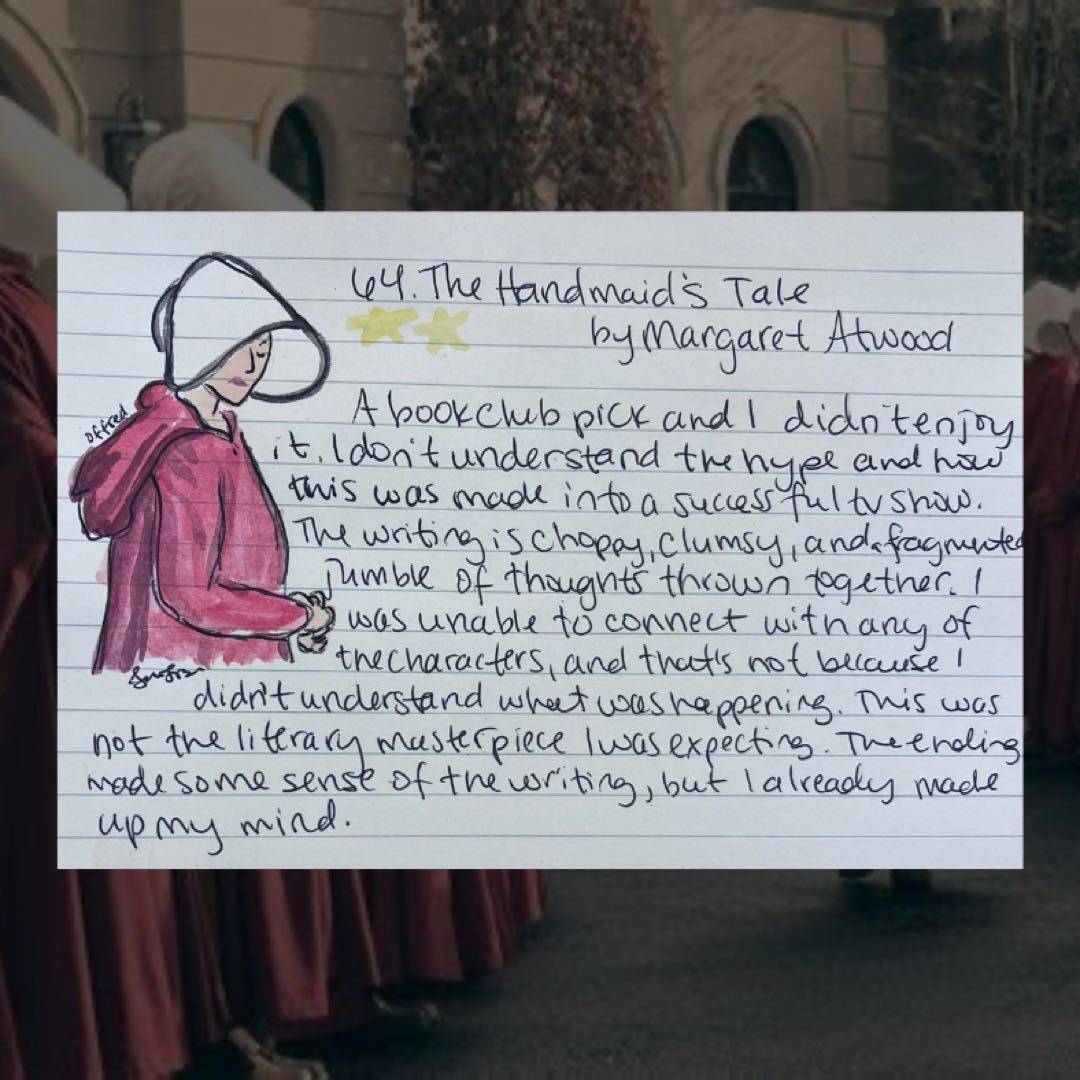 64. The Handmaid's Tale
by Margaret Atwood
A book club pick and I didn't enjoy
it. I don't understand the hype and how
this was made into a successful tv show.
The writing is choppy, clumsy, and a fragmented
jumble of thoughts thrown together. I
was unable to connect with any of
the characters, and that's not because I
didn't understand what was happening. This was
not the literary masterpiece I was expecting. The ending
made some sense of the writing, but I already made
up my mind.
offred